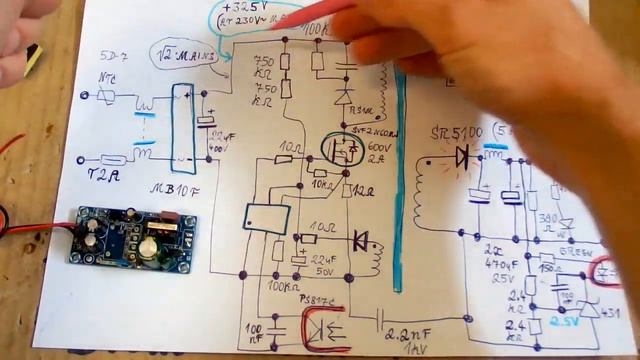 +325V
(AT 230V~
√2 MAINS
5D-7
NTC
750
kΩ
750
kΩ
100k
22uF
400V
T2A
MB10F
SVF2N60
600V
2A
10Ω
10kΩ
12Ω
10Ω
22uF
50V
100kΩ
PS817C
100
nF
2.2nF
1kV
SR5100
2x
470uF
25V
330
Ω
GREEN
150Ω
100
2.4
kΩ
2.5V
431
2.4
kΩ